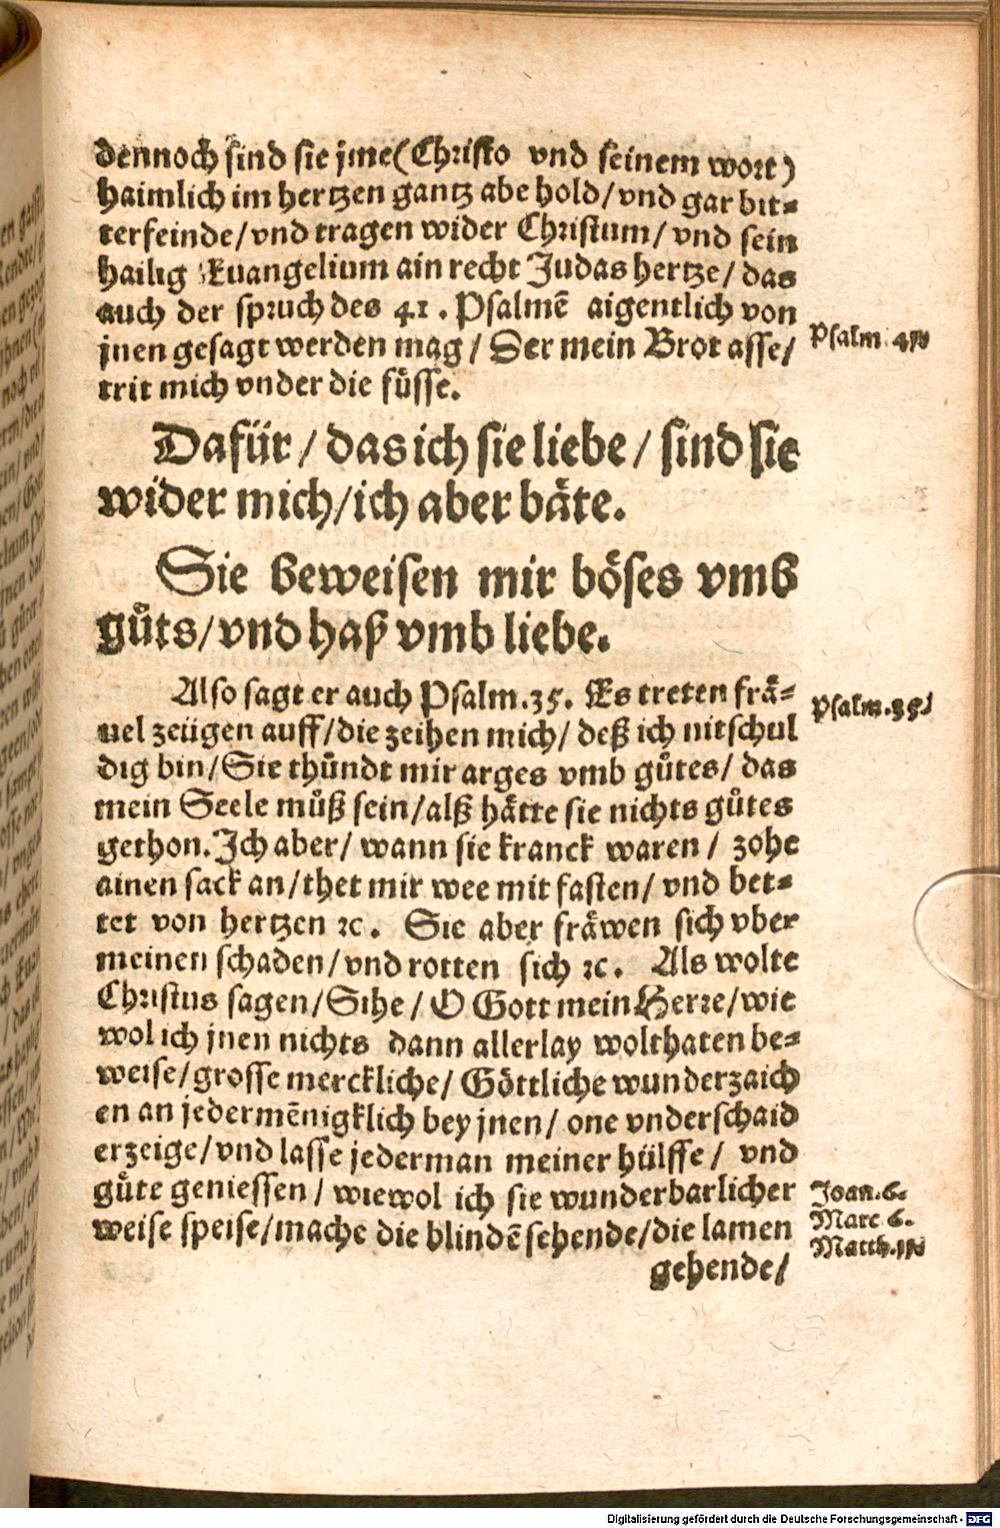 dennoch sind sie jme (Christo vnd seinem wort)
haimlich im hertzen gantz abe hold/ vnd gar bit-
terfeinde/ vnd tragen wider Christum/ vnd sein
hailig Euangelium ain recht Judas hertze/ das
auch der spruch des 41. Psalmē aigentlich von
jnen gesagt werden mag/ Der mein Brot asse/
Psalm. 41.
trit mich vnder die füsse.
Dafür/ das ich sie liebe/ sind sie
wider mich/ ich aber bäte.
Sie beweisen mir böses vmb
gůts/ vnd haß vmb liebe.
Also sagt er auch Psalm. 35. Es treten frä-
Psalm. 35.
uel zeügen auff/ die zeihen mich/ deß ich nit schul
dig bin/ Sie thůndt mir arges vmb gůtes/ das
mein Seele můß sein/ alß hätte sie nichts gůtes
gethon. Ich aber/ wann sie kranck waren/ zohe
ainen sack an/ thet mir wee mit fasten/ vnd bet-
tet von hertzen ꝛc. Sie aber fräwen sich vber
meinen schaden/ vnd rotten sich ꝛc. Als wolte
Christus sagen/ Sihe/ O Gott mein Herre/ wie
wol ich jnen nichts dann allerlay wolthaten be-
weise/ grosse merckliche/ Göttliche wunderzaich
en an jedermēnigklich bey jnen/ one vnderschaid
erzeige/ vnd lasse jederman meiner hülffe/ vnd
gůte geniessen/ wiewol ich sie wunderbarlicher
Joan. 6.
weise speise/ mache die blindē sehende/ die lamen
Marc 6.
Matth. 11.
gehende/
Digitalisierung gefördert durch die Deutsche Forschungsgemeinschaft - DFG